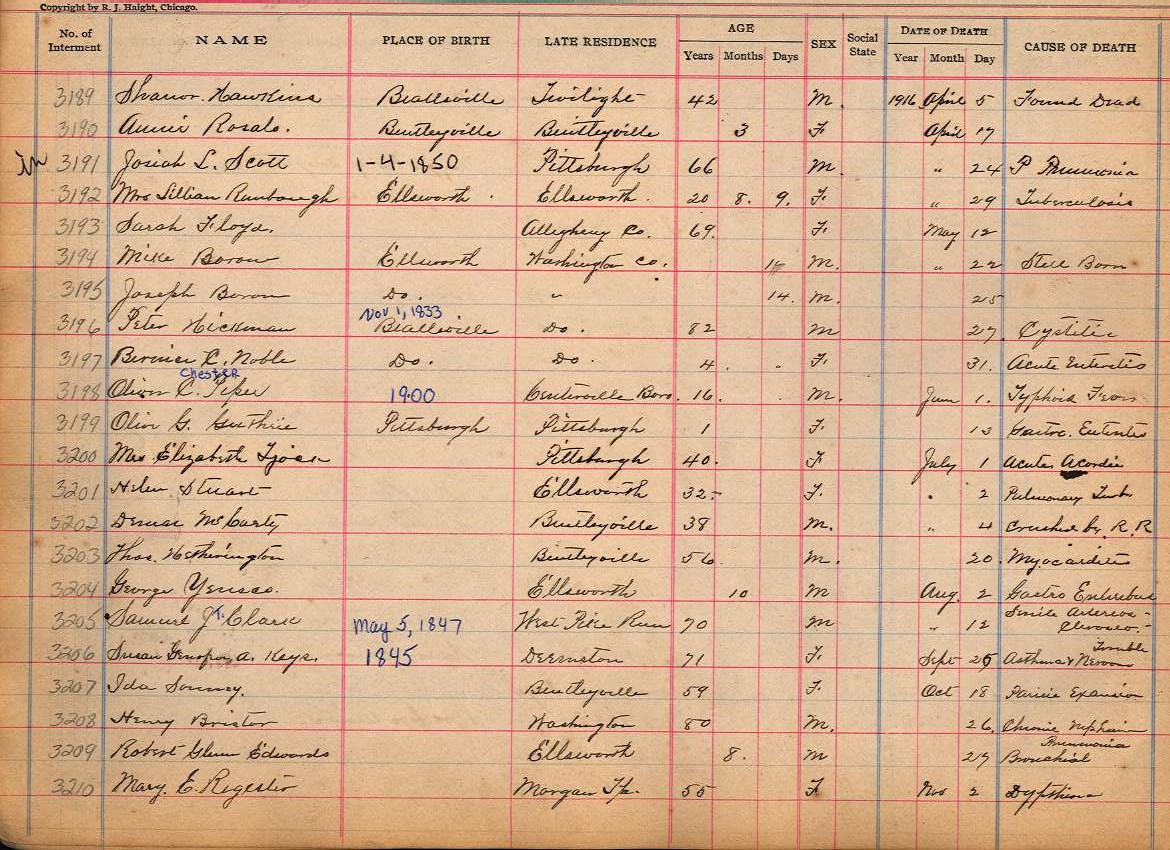 Copyright by R. J. Haight, Chicago.
No. of Interment NAME PLACE OF BIRTH LATE RESIDENCE AGE Years Months Days SEX Social State DATE OF DEATH Year Month Day CAUSE OF DEATH
3189 Hawkins Beallsville Twilight 42 M. 1916 April 5 Found Dead
3190 Annie Rosalo. Bentleyville Bentleyville 3 F. April 17
in 3191 Josiah L. Scott 1-4-1850 Pittsburgh 66 M. " 24 P Pneumonia
3192 Mrs Lillian Rumbaugh Ellsworth. Ellsworth. 20 8. 9. F. " 29 Tuberculosis
3193 Sarah Floyd. Allegheny Co. 69. F. May 12
3194 Mike Boron Ellsworth Washington Co. M. " 22 Still Born
3195 Joseph Boron Do. " 14. M. 25
Nov 1, 1833
3196 Peter Hickman Beallsville Do. 82 M 27 Cystitis
3197 Bernice C. Noble Do. Do. 4. F. 31. Acute Enteritis
Chester
3198 C. Piper 1900 Centerville Boro. 16. M. June 1. Typhoid Fever
3199 G. Guthrie Pittsburgh Pittsburgh 1 F. 13 Gastro. Enteritis
3200 Mrs Elizabeth Pittsburgh 40. F July 1 Acute
3201 Helen Stuart Ellsworth 32 F. 2 Pulmonary Tuber
3202 McCarty Bentleyville 38 M. " 4 Crushed by R. R
3203 Thos. Hetherington Bentleyville 56 M. 20. Myocarditis
3204 George Yensco. Ellsworth 10 M Aug. 2 Gastro
3205 Samuel J. T. Clark May 5, 1847 West Pike Run 70 M " 12 Senile Arterios-
3206 Susan A. Keys. 1845 Deemston 71 F. Sept 25 Asthma & Trouble
3207 Ida Bentleyville 59 F. Oct 18
3208 Henry Bristor Washington 80 M. 26. Chronic
3209 Robert Glenn Edwards Ellsworth 8. M 27 Bronchial Pneumonia
3210 Mary. E. Register Morgan Tp. 55 F. Nov 2